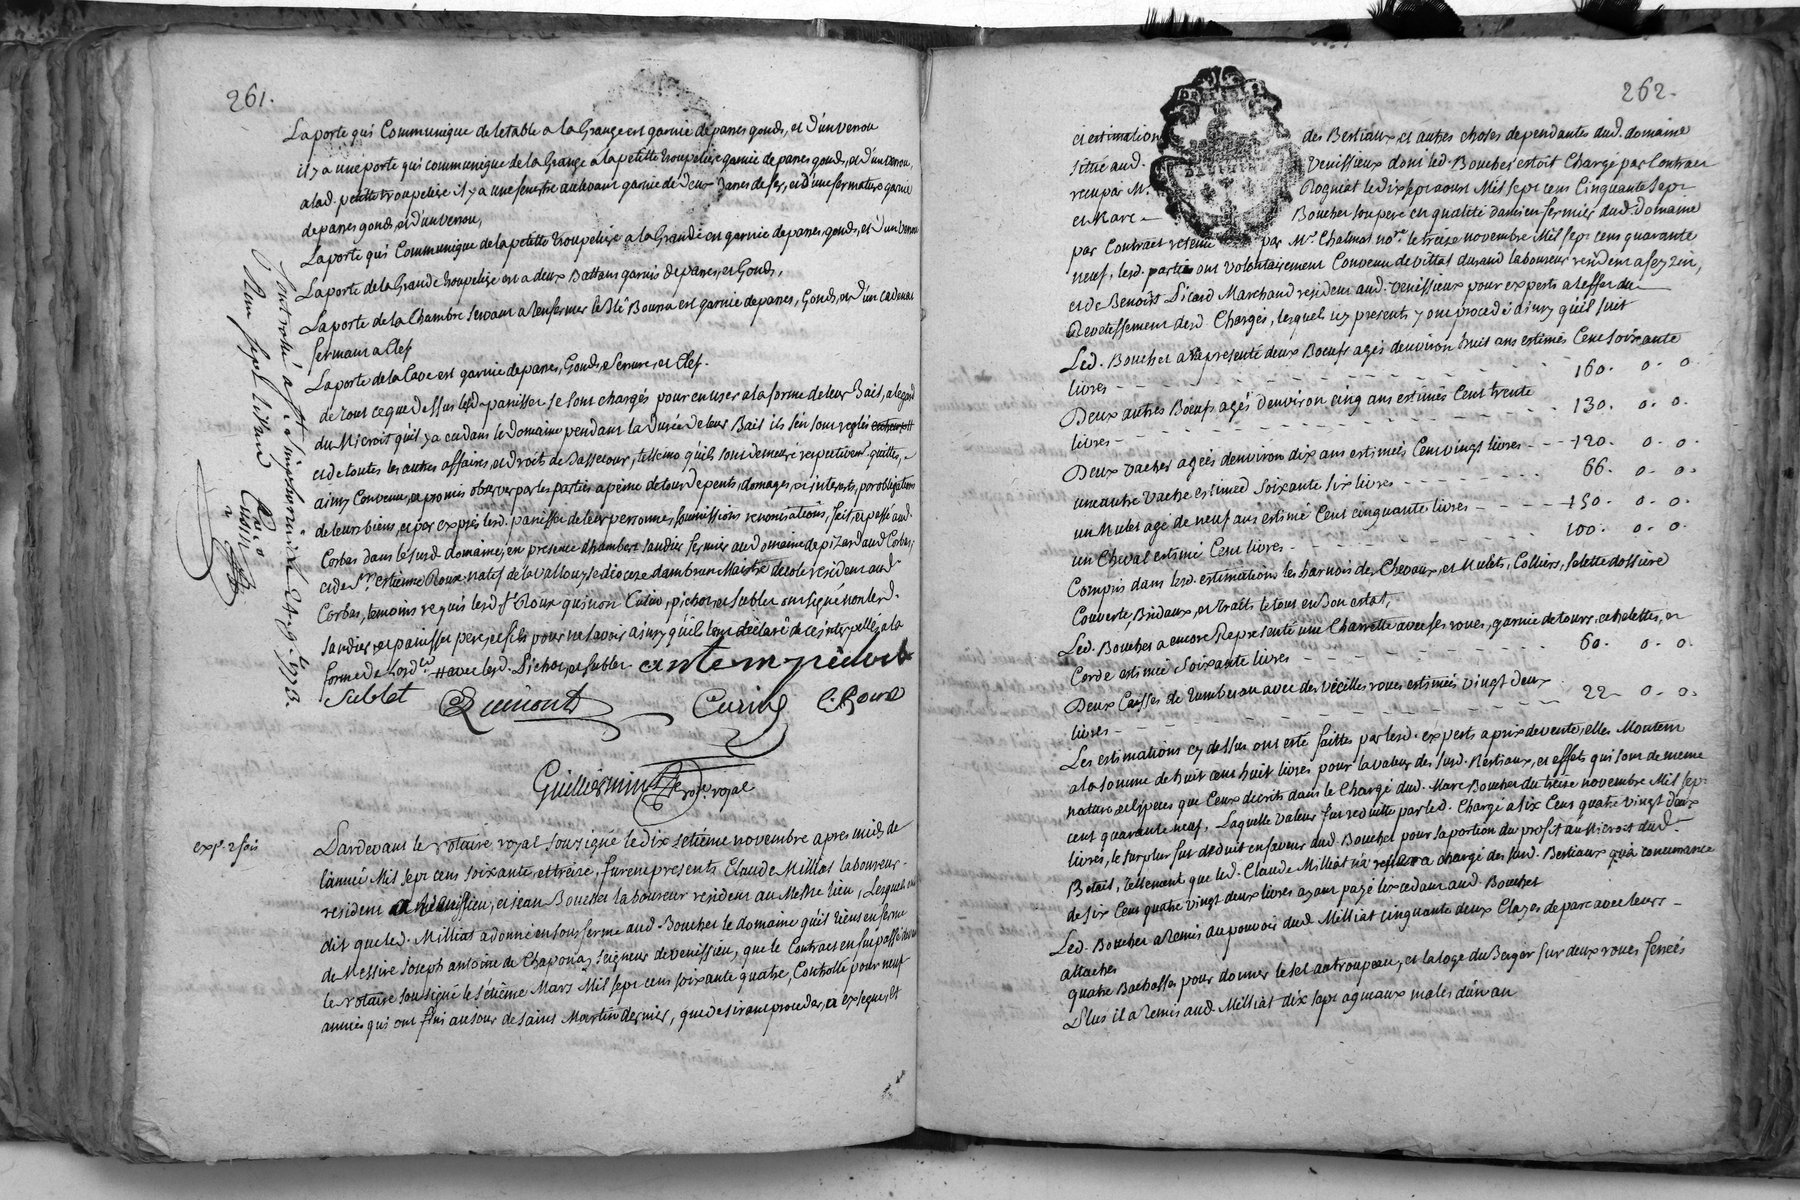 261.
La porte qui Communique de letable a la Grange est garnie de panes gonds, et d'un verou
il y a une porte qui communique de la Grange a la petitte troupeliere garnie de panes gonds, et d'un verou,
a lad. petitte troupeliere il y a une fenestre au levant garnie de deux Danes de fer, et d'une fermature garnie
de panes gonds, et d'un verou,
La porte qui Communique de la petitte troupeliere a la Grande est garnie de panes, gonds, et d'un verou
La porte de la Grande troupeliere est a deux Battans garnis de panes, et Gonds,
La porte de la Chambre servant a Renfermer le Blé Bourru est garnie de panes, Gonds, et d'un cadenat
fermant a Clef
La porte de la Cave est garnie de panes, Gonds, Serrure, et Clef.
de tout ce que dessus lesd. panisset se sont chargés pour en user a la forme de leur Bail, a legard
du Microit qu'il y a eu dans le domaine pendant la Durée de leur Bail ils s'en sont reglés
et de toutes les autres affaires, et droits de , tellemt qu'ils sont demeuré respectivemt quittes,
ainsy Convenu, et promis observer par les parties a peine de tous depents, domages, et interests, par obligations
de leurs biens, et par exprès lesd. panisset de leur personnes soumissions renonciations, fait, et passé aud.
Corbas dans le susd. domaine, en presence d'humbert Sandier fermier au domaine de pizard aud Corbas,
et de Sr. estienne Roux natif de la vallouyse dioceze dambrun Maistre decole resident aud.
Corbas, temoins requis lesd. Sr. Roux qui non Curin, pichot, et Sublet ont signé non led.
Sandier, et panisset pere, et fils pour ne savoir ainsy qu'ils l'ont declaré de ce interpellés a la
forme de Lordce. avec lesd. Pichot, et Sublet.
Sublet Dumont Curin E. Roux
Guilliermin nore. royal
exp. 2 fois
Pardevant le notaire royal soussigné le dix setieme novembre apres midy de
lannée Mil sept cens soixante, et treize, furent presents Claude Milliat laboureur
resident a venissieu, et jean Boucher laboureur resident au Mesme lieu, Lesquels ont
dit que led. Milliat a donné en sous ferme aud Boucher le domaine qu'il tient en ferme
de Messire Joseph antoine de Chaponay Seigneur de venissieu, que le Contract en fut passé devant
le notaire soussigné le setieme Mars Mil sept cens soixante quatre, Controllé pour neuf
années qui ont fini au jour de saint Martin dernier, que desirant proceder, a exsegue, et
262.
et estimation des Bestiaux et autres choses dependantes dud. domaine
situé aud. Venissieux dont led. Boucher estoit Chargé par Contract
receu par Me. Rogniat le dix sept aoust Mil sept cens Cinquante sept
et Marc Boucher son pere en qualité d'ancien fermier dud. domaine
par Contract receu par Me. Chalmat nore. le treize novembre Mil sept cens quarante
neuf, lesd. parties ont volontairement Convenu de vittal durand laboureur resident a feyzin,
et de Benoist Picard Marchand resident aud. venissieux pour experts a leffet du
Revetissement desd. Charges, lesquels icy presents y ont procedé ainsy qu'il suit
Led. Boucher a Representé deux Boeufs agés denviron huit ans estimés Cent soixante
livres 160. 0. 0.
Deux autres Boeufs agés denviron cinq ans estimés Cent trente
livres 130. 0. 0.
Deux vaches agées denviron dix ans estimées Cent vingt livres 120. 0. 0.
une autre vache estimeé soixante six livres 66. 0. 0.
un Mulet agé de neuf ans estimé Cent cinquante livres 150. 0. 0.
un Cheval estimé Cent livres 100. 0. 0.
Compris dans lesd. estimations les harnois des Chevaux, et Mulets, Colliers, selette dossiere
Couverte Bridaux, et traits le tout en Bon estat,
Led. Boucher a encore Representé une Charrette avec ses roues, garnie de tours, echelettes, et
Corde estimée soixante livres 60. 0. 0.
Deux Caisses de tumbereau avec des vieilles roues estimées vingt deux
livres 22. 0. 0.
Les estimations cy dessus ont esté faittes par lesd. experts a prix de vente, elles Montent
a la somme de huit cent huit livres pour la valeur des susd. Bestiaux, et effets qui sont de meme
nature et especes que Ceux decrits dans le Chargé dud. Marc Boucher du treize novembre Mil sept
cent quarante neuf, Laquelle valeur fut reduitte par led. Chargé a six Cent quatre vingt deux
livres, le surplus fut deduit en faveur dud Boucher pour sa portion du profit au Microit dud.
Betail, tellement que led. Claude Milliat n'a chargé des susd. Bestiaux qu'a concurrance
de six Cent quatre vingt deux livres ayant payé lexcedant aud. Boucher
Led. Boucher a Remis au pouvoir dud Milliat cinquante deux Clayes de parc avec leurs
attaches
quatre Bachasses pour donner le sel au troupeau, et la loge du Berger sur deux roues ferrées
Plus il a Remis aud. Milliat dix sept agneaux males d'un an